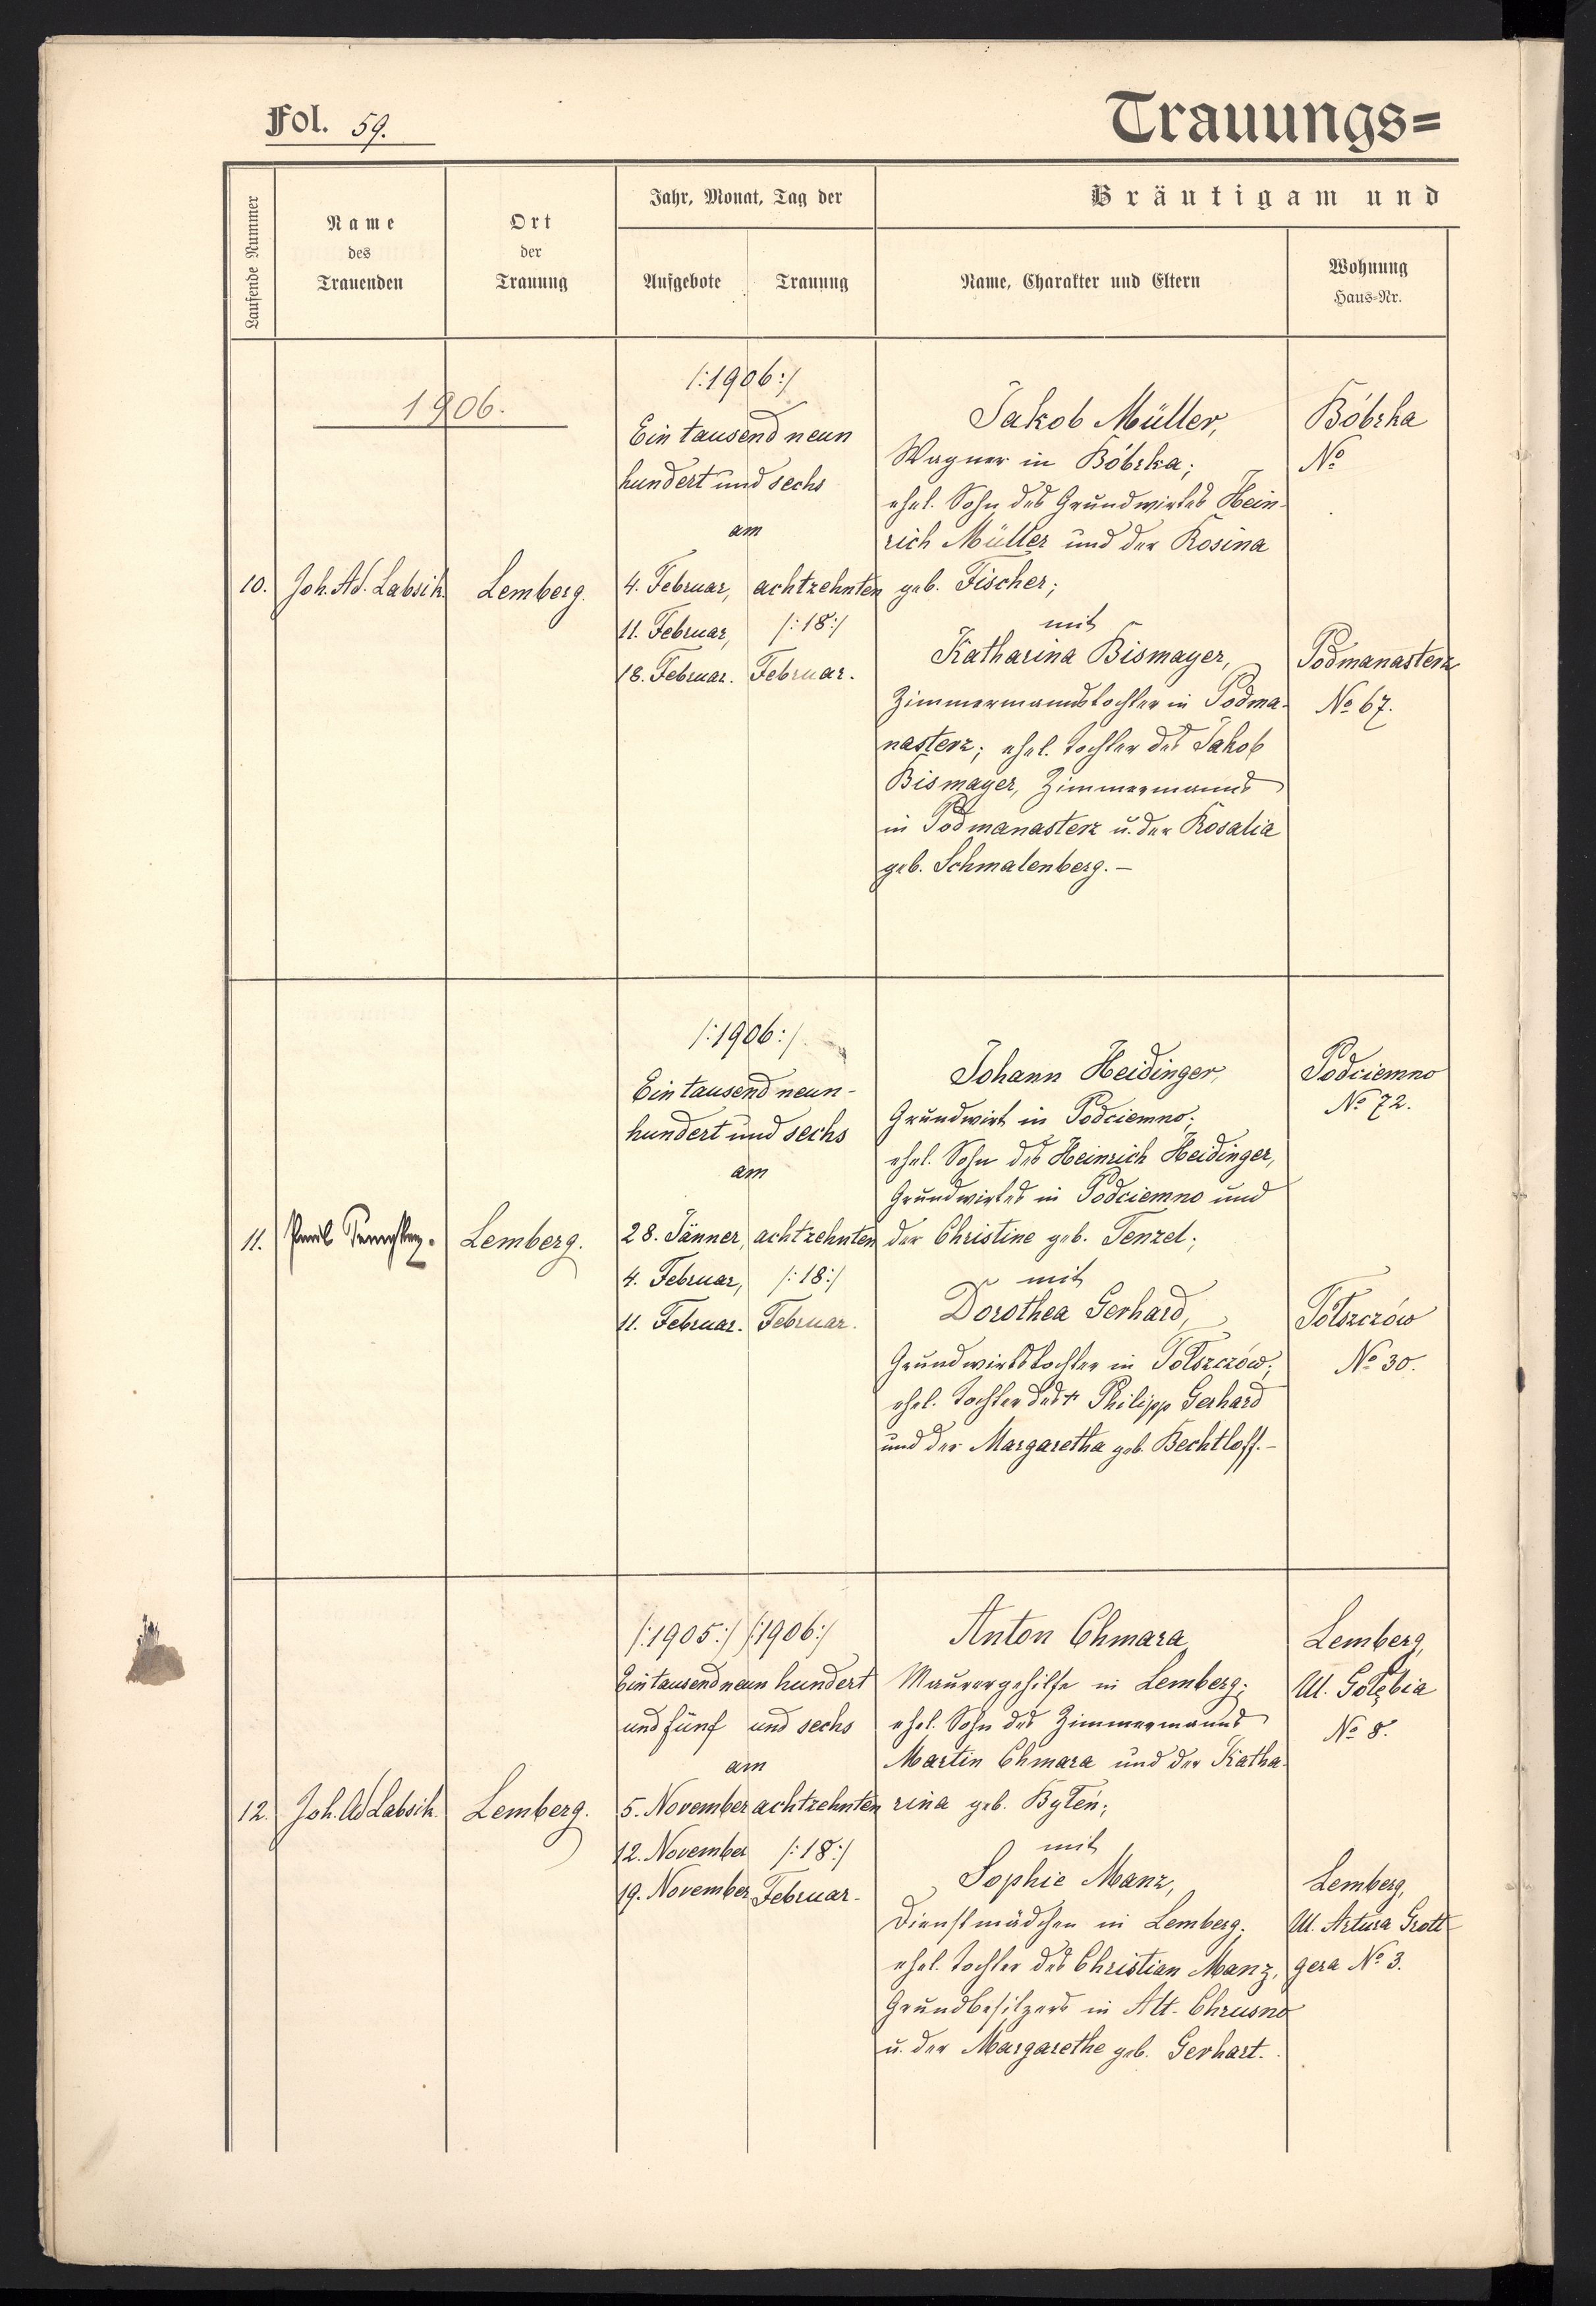 Fol. 59.
Trauungs=
Laufende Nummer
Name
des
Trauenden
Ort
der
Trauung
Jahr, Monat, Tag der
Aufgebote
Trauung
Bräutigam und
Name, Charakter und Eltern
Wohnung
Haus-Nr.
1906.
10.
Joh. Ad. Labsik.
Lemberg.
/:1906:/
Ein tausend neun
hundert und sechs
am
4. Februar, achtzehnten
11. Februar, /:18:/
18. Februar. Februar.
Jakob Müller,
Wagner in Bóbrka;
ehel. Sohn des Grundwirtes Hein-
rich Müller und der Rosina
geb. Fischer;
mit
Katharina Bismayer,
Zimmermannstochter in Podma-
nasterz; ehel. Tochter des Jakob
Bismayer, Zimmermanns
in Podmanasterz u. der Rosalia
geb. Schmalenberg. —
Bóbrka
No
Podmanasterz
No 67.
11.
Lemberg.
/:1906:/
Ein tausend neun-
hundert und sechs
am
28. Jänner, achtzehnten
4. Februar, /:18:/
11. Februar. Februar.
Johann Heidinger,
Grundwirt in Podciemno;
ehel. Sohn des Heinrich Heidinger,
Grundwirtes in Podciemno und
der Christine geb. Tenzel;
mit
Dorothea Gerhard,
Grundwirtstochter in Tołszczów;
ehel. Tochter des † Philipp Gerhard
und der Margaretha geb. Bechtloff. —
Podciemno
No 72.
Tołszczów
No 30.
12.
Joh. Ad Labsik.
Lemberg.
/:1905:/ /:1906:/
Ein tausend neun hundert
und fünf und sechs
am
5. November achtzehnten
12. November /:18:/
19. November Februar.
Anton Chmara,
Maurergehilfe in Lemberg;
ehel. Sohn des Zimmermanns
Martin Chmara und der Katha-
rina geb. Byłeń;
mit
Sophie Manz,
Dienstmädchen in Lemberg;
ehel. Tochter des Christian Manz,
Grundbesitzers in Alt-Chrusno
u. der Margarethe geb. Gerhart.
Lemberg,
Ul. Gołębia
No 8.
Lemberg,
Ul. Artura Grott-
gera No 3.